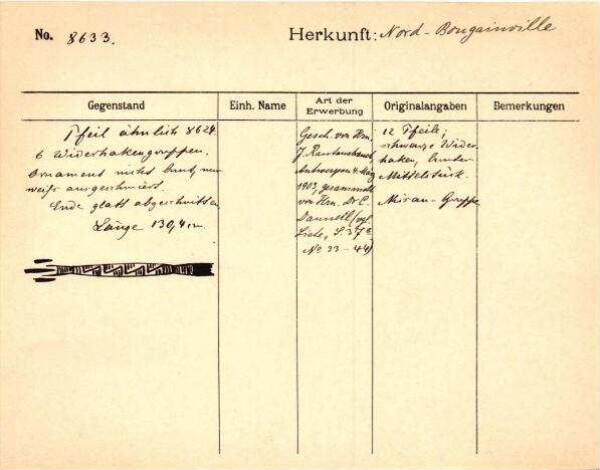 No. 8633.
Herkunft: Nord-Bougainville
Gegenstand
Einh. Name
Art der Erwerbung
Originalangaben
Bemerkungen
Pfeil ähnlich 8624.
6 Widerhakengruppen.
Ornament nicht bunt, nur
weiß ausgeschmiert.
Ende glatt abgeschnitten
Länge 130,4 cm
Gesch. von Hrn.
J. Rautenstrauch,
Antwerpen
1903, gesammelt
von Hrn. Dr.
(vgl.
Liste, S. 37
No 33-44)
12 Pfeile;
schwarze Wider-
haken, bunter
Mittelstück.
Gruppe